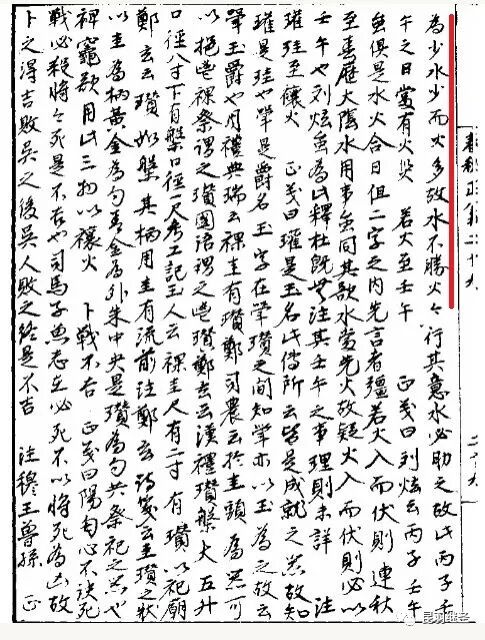 春秋正義二十九
為少水少而火多故水不勝火々行其意水必助之故此丙子壬
午之日當有火災　若火至壬午　正義曰刘炫云丙子壬午
無俱是水火合日但二字之内先言者彊若火入而伏則連秋
至春歷大陰水用事無間其欲水當先火故疑火入而伏則必以
壬午也刘炫虽為此釋杜既無注其壬午之事理則未詳　注
瓘珪至禳火　正義曰瓘是玉名此傳所云皆是成就之器故知
瓘是珪也斝是爵名玉字在斝瓚之間知斝亦以玉為之故云
斝玉爵也周禮典瑞云祼圭有瓚鄭司農云於圭頭為器可
以挹鬯祼祭謂之瓚國語謂之鬯瓚鄭玄云漢禮瓚槃大五升
口徑八寸下有槃口徑一尺考工記玉人云祼圭尺有二寸有瓚以祀廟
鄭玄云瓚如槃其柄用圭有流前注鄭玄詩箋云圭瓚之狀
以圭為柄黃金為勺青金為外朱中央是瓚為勺共祭祀之器也
裨竈欲用此三物以禳火　卜戰不吉　正義曰陽匄心不決死
戰必殺將々死是不吉也司馬子魚志在必死不以將死為凶故
卜之得吉敗吳之後吳人敗之終是不吉　注穆王曾孫　正
昆羽继圣